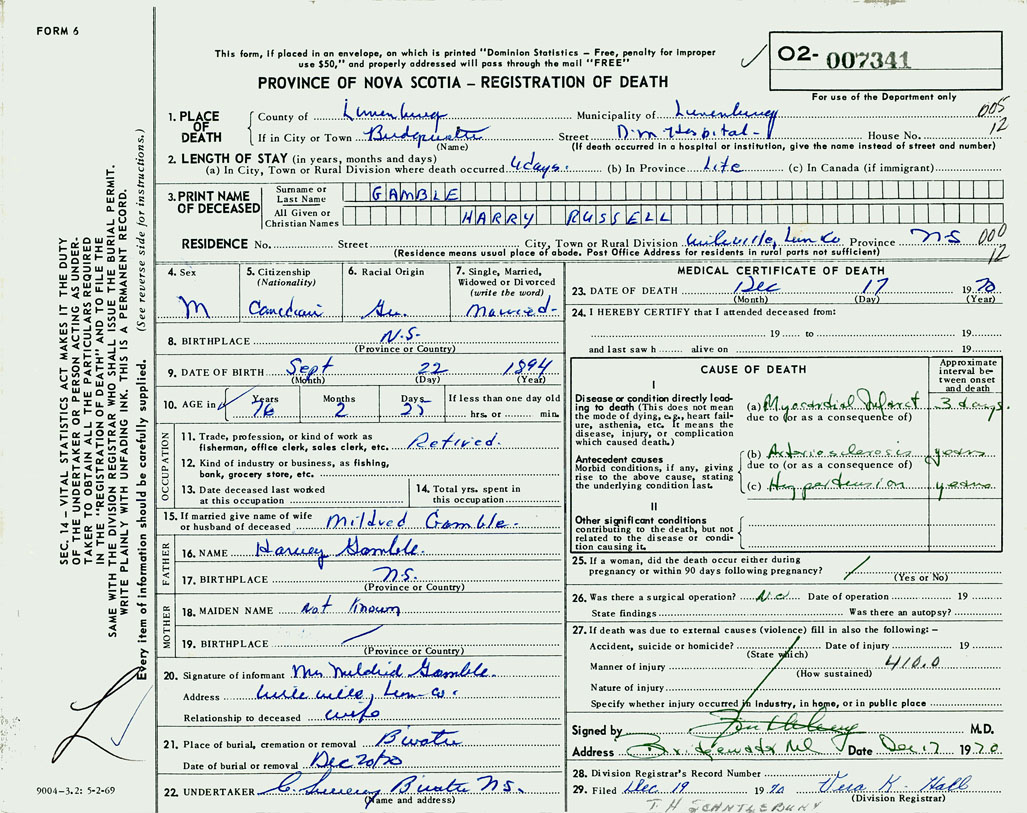 FORM 6
This form, if placed in an envelope, on which is printed "Dominion Statistics – Free, penalty for improper
use $50," and properly addressed will pass through the mail "FREE"
O2- 007341
For use of the Department only
PROVINCE OF NOVA SCOTIA – REGISTRATION OF DEATH
1. PLACE OF DEATH
County of Lunenburg Municipality of Lunenburg 005
If in City or Town Bridgewater Street D.M. Hospital House No. 12
(Name) (If death occurred in a hospital or institution, give the name instead of street and number)
2. LENGTH OF STAY (in years, months and days)
(a) In City, Town or Rural Division where death occurred 4 days. (b) In Province Life (c) In Canada (if immigrant)
3. PRINT NAME OF DECEASED
Surname or Last Name GAMBLE
All Given or Christian Names HARRY RUSSELL
RESIDENCE No. Street City, Town or Rural Division Lun Co Province NS 000
(Residence means usual place of abode. Post Office Address for residents in rural parts not sufficient) 12
4. Sex
M
5. Citizenship
(Nationality)
Canadian
6. Racial Origin
Ger.
7. Single, Married,
Widowed or Divorced
(write the word)
Married
8. BIRTHPLACE N.S.
(Province or Country)
9. DATE OF BIRTH Sept 22 1894
(Month) (Day) (Year)
10. AGE in Years Months Days If less than one day old
76 2 hrs. or min.
OCCUPATION
11. Trade, profession, or kind of work as
fisherman, office clerk, sales clerk, etc. Retired.
12. Kind of industry or business, as fishing,
bank, grocery store, etc.
13. Date deceased last worked
at this occupation
14. Total yrs. spent in
this occupation
15. If married give name of wife
or husband of deceased Mildred Gamble.
FATHER
16. NAME Harvey Gamble.
17. BIRTHPLACE N.S.
(Province or Country)
MOTHER
18. MAIDEN NAME Not Known
19. BIRTHPLACE
(Province or Country)
20. Signature of informant Mrs Mildrid Gamble.
Address Lun-Co.
Relationship to deceased wife
21. Place of burial, cremation or removal B'water
Date of burial or removal Dec 20/70
22. UNDERTAKER C. Sweeny B'water N.S.
(Name and address)
MEDICAL CERTIFICATE OF DEATH
23. DATE OF DEATH Dec 17 1970
(Month) (Day) (Year)
24. I HEREBY CERTIFY that I attended deceased from:
19 to 19
and last saw h alive on 19
CAUSE OF DEATH
Approximate interval between onset and death
I
Disease or condition directly leading
to death (This does not mean
the mode of dying, e.g., heart failure,
asthenia, etc. It means the
disease, injury, or complication
which caused death.)
(a) Myocardial Infarct 3 days.
due to (or as a consequence of)
Antecedent causes
Morbid conditions, if any, giving
rise to the above cause, stating
the underlying condition last.
(b) Arteriosclerosis years
due to (or as a consequence of)
(c) Hypertension years
II
Other significant conditions
contributing to the death, but not
related to the disease or condition
causing it.
25. If a woman, did the death occur either during
pregnancy or within 90 days following pregnancy?
(Yes or No)
26. Was there a surgical operation? No Date of operation 19
State findings Was there an autopsy?
27. If death was due to external causes (violence) fill in also the following: –
Accident, suicide or homicide? Date of injury 19
(State which)
Manner of injury 410.0
(How sustained)
Nature of injury
Specify whether injury occurred in industry, in home, or in public place
Signed by M.D.
Address Bridgewater NS Date Dec 17 1970
28. Division Registrar's Record Number
29. Filed Dec 19 1970 Vera K. Hall
(Division Registrar)
SEC. 14 – VITAL STATISTICS ACT MAKES IT THE DUTY
OF THE UNDERTAKER OR PERSON ACTING AS UNDERTAKER
TO OBTAIN ALL THE PARTICULARS REQUIRED
IN THE "REGISTRATION OF DEATH" AND TO FILE THE
SAME WITH THE DIVISION REGISTRAR WHO SHALL ISSUE THE BURIAL PERMIT.
WRITE PLAINLY WITH UNFADING INK. THIS IS A PERMANENT RECORD.
Every item of information should be carefully supplied. (See reverse side for instructions.)
9004–3.2: 5-2-69